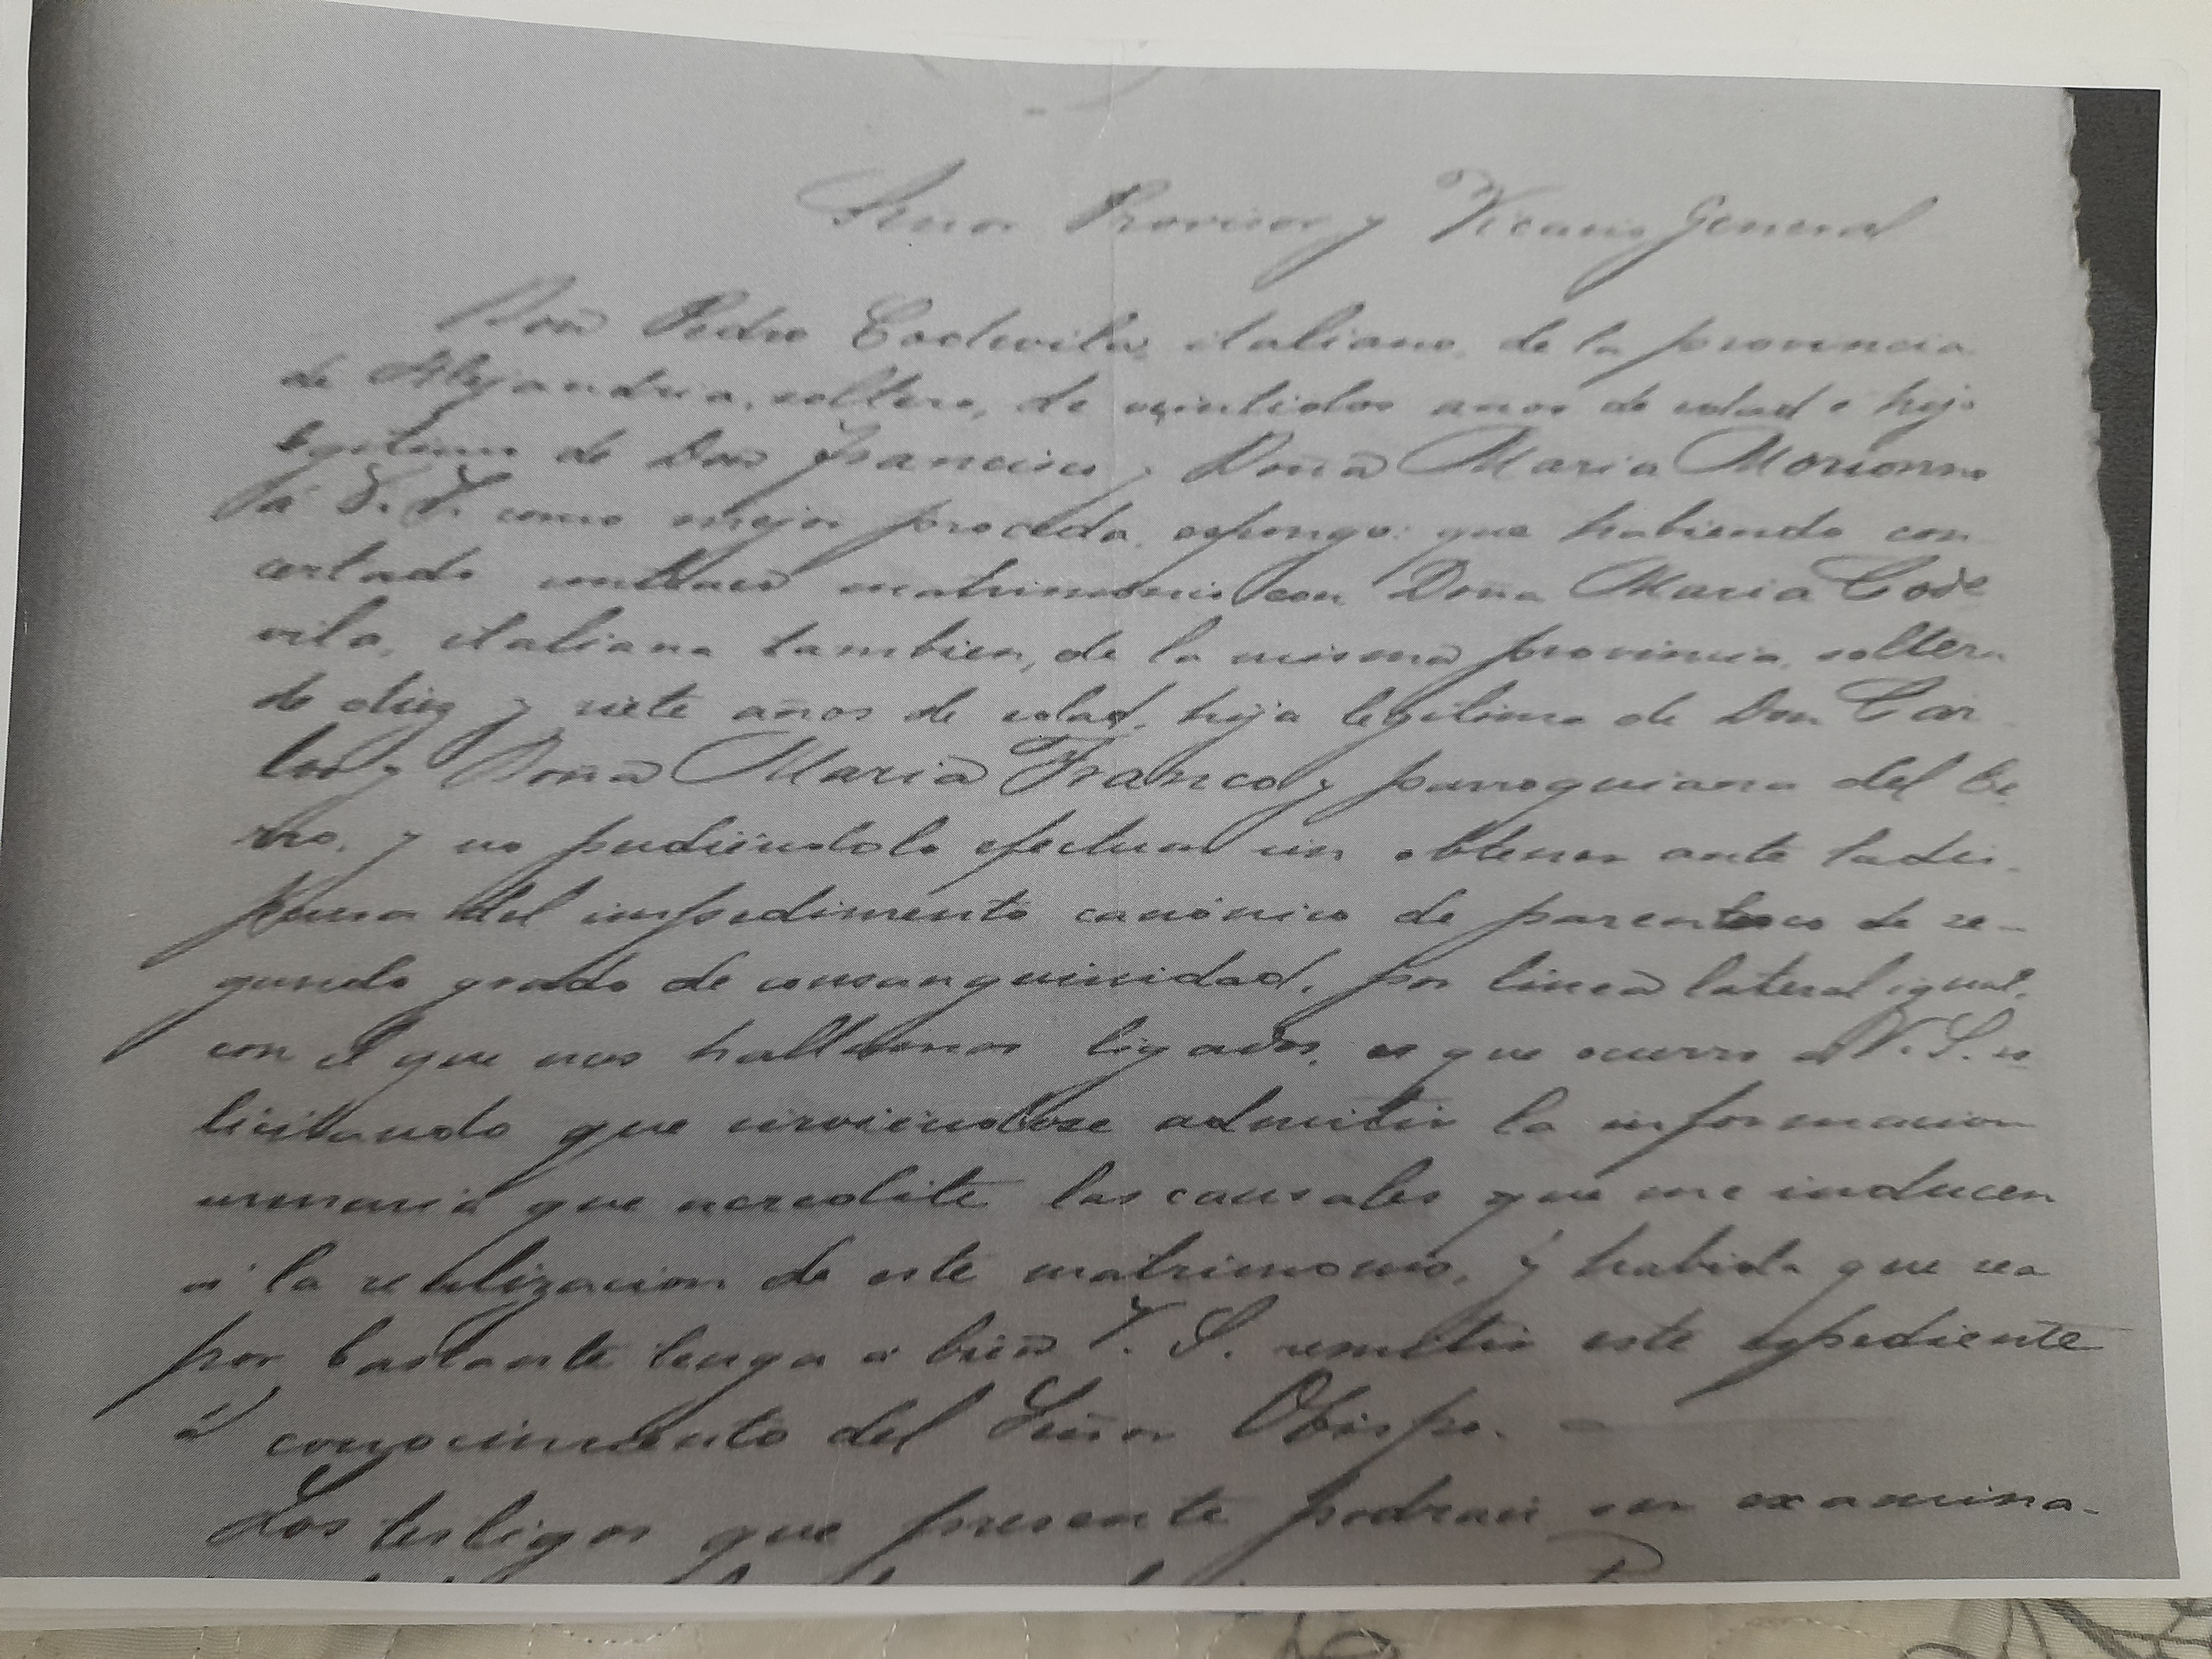 Señor Provisor y Vicario General
Don Pedro Codevila, italiano, de la provincia
de Alejandria, soltero, de veintidos anos de edad e hijo
legitimo de Don Francisco y Doña Maria
á V. S. como mejor proceda, espongo: que habiendo con
certado contraer matrimonio con Doña Maria Code
vila, italiana tambien, de la misma provincia, soltera
de diez y siete años de edad, hija legitima de Don Car
los y Doña Maria Franco y parroquiana del Ce
rro, y no pudiéndolo efectuar sin obtener ante la dis
pensa del impedimento canónico de parentesco de se-
gundo grado de consanguinidad, por linea lateral igual,
con el que nos hallamos ligados, es que ocurro a V. S. so
licitando que sirviendose admitir la informacion
sumaria que acredite las causales que me inducen
á la realizacion de este matrimonio, y habida que sea
por bastante tenga a bien V. S. remitir este espediente
al conocimiento del Señor Obispo. —
Los testigos que presente podran ser examina-